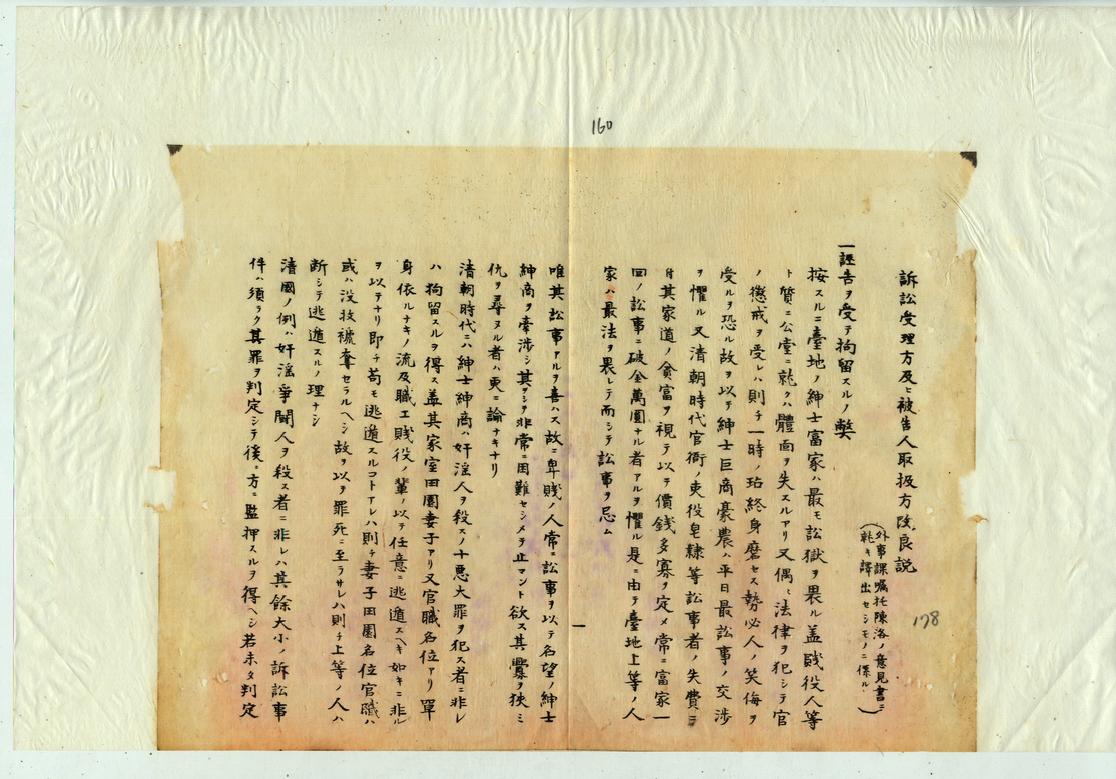 160
178
訴訟受理方及ヒ被告人取扱方改良説
(外事課嘱托陳洛ノ意見書ニ
就キ譯出セシモノニ係ル)
一誣告ヲ受テ拘留スルノ弊
按スルニ臺地ノ紳士富家ハ最モ訟獄ヲ畏ル盖賤役人等
ト質ニ公堂ニ就クハ體面ヲ失スルアリ又偶〻法律ヲ犯シテ官
ノ懲戒ヲ受レハ則チ一時ノ玷終身磨セス勢必人ノ笑侮ヲ
受ルヲ恐ル故ヲ以テ紳士巨商豪農ハ平日最訟事ノ交渉
ヲ懼ル又清朝時代官衙ノ吏役皂隷等訟事者ノ失費ニ
付其家道ノ貪富ヲ視テ以テ價銭多寡ヲ定メ常ニ富家一
回ノ訟事ニ破金萬圓ナル者アルヲ懼ル是ニ由テ臺地上等ノ人
家ハ最法ヲ畏レテ而シテ訟事ヲ忌ム
唯其訟事アルヲ喜ハス故ニ卑賤ノ人常ニ訟事ヲ以テ名望ノ紳士
紳商ヲ牽渉シ其ヲシテ非常ニ困難セシメテ止マント欲ス其釁ヲ挾ミ
仇ヲ尋ヌル者ハ更ニ論ナキナリ
清朝時代ニハ紳士紳商ハ奸淫人ヲ殺スノ十悪大罪ヲ犯ス者ニ非レ
ハ拘留スルヲ得ス盖其家室田園妻子アリ又官職名位アリ單
身依ルナキノ流及職工賤役ノ輩ノ以テ任意ニ逃遁スヘキ如キニ非ル
ヲ以テナリ即チ苟モ逃遁スルコトアレハ則チ妻子田園名位官職ハ
或ハ没收褫奪セラルヘシ故ヲ以テ罪死ニ至ラサレハ則チ上等ノ人ハ
断シテ逃遁スルノ理ナシ
清國ノ例ハ奸淫爭鬪人ヲ殺ス者ニ非レハ其餘大小ノ訴訟事
件ハ須ラク其罪ヲ判定シテ後ニ方ニ監押スルヲ得ヘシ若未タ判定